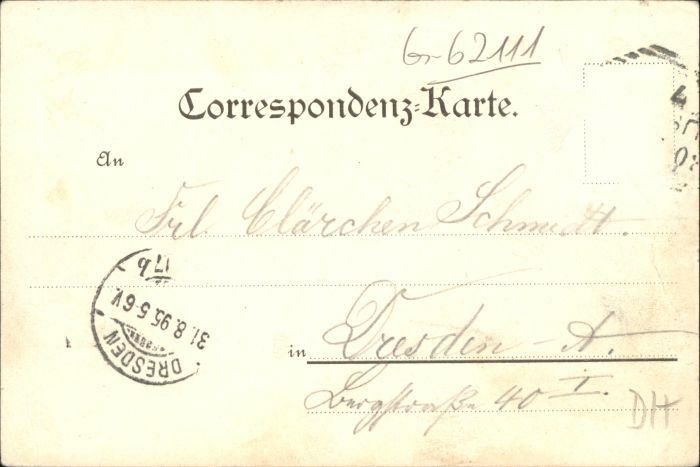 Gr 62111
Correspondenz-Karte.
An
Frl. Clärchen Schmidt.
in Dresden-A.
Bergstraße 40 I.
DH
DRESDEN
31.8.95. 5-6 V.
17b